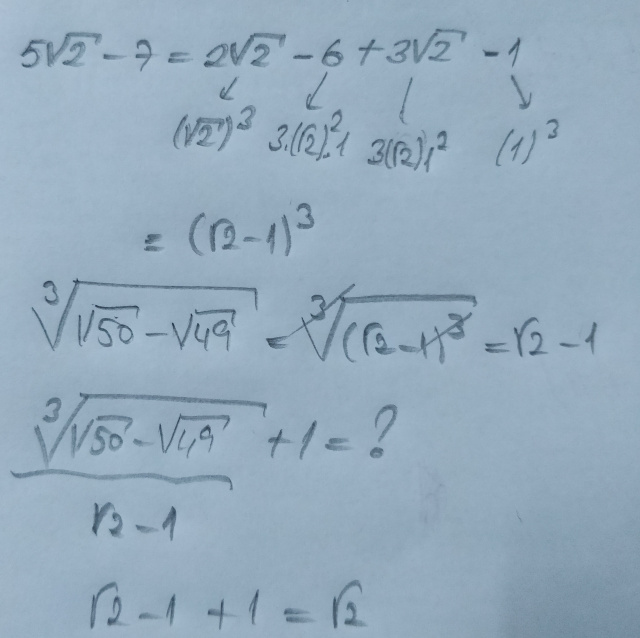 5√2 - 7 = 2√2 - 6 + 3√2 - 1
(√2)³ 3.(√2)².1 3(√2).1² (1)³
= (√2-1)³
∛(√50 - √49) = ∛((√2-1)³) = √2 - 1
∛(√50 - √49) + 1 = ?
√2 - 1
√2 - 1 + 1 = √2